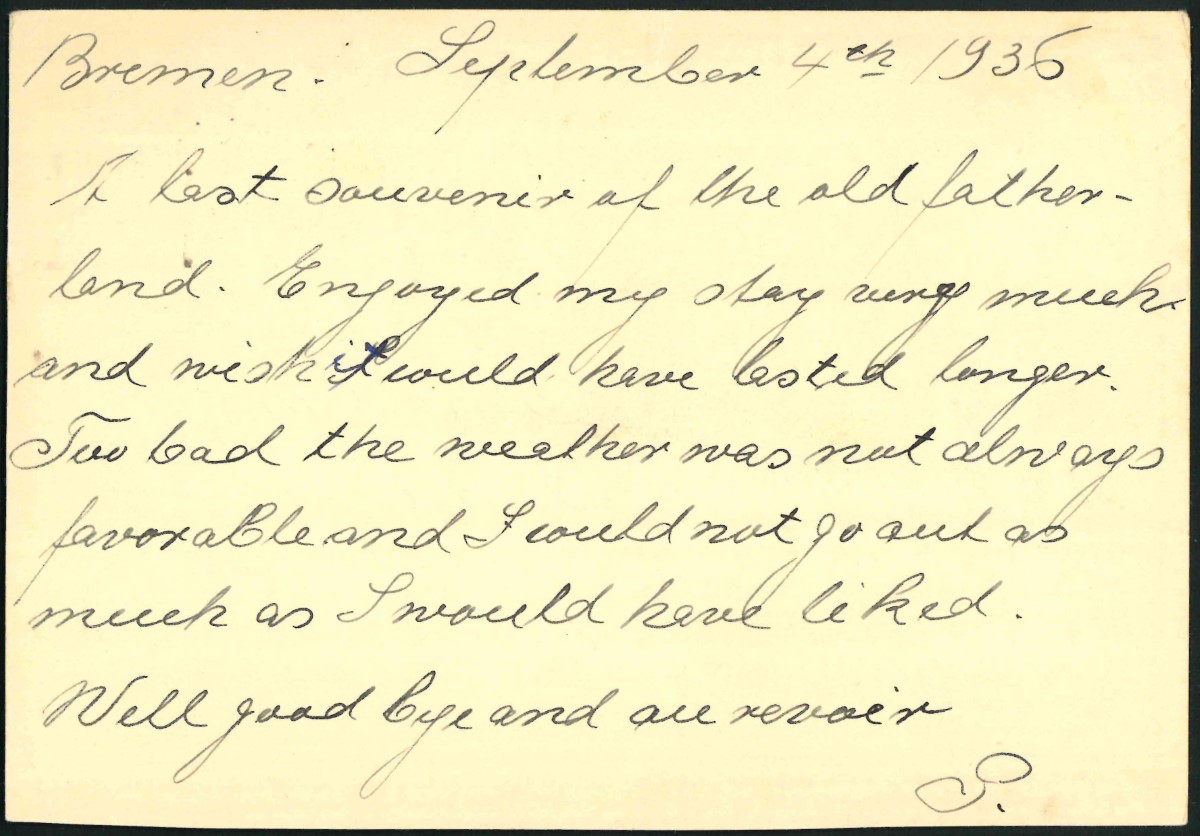 Bremen. September 4th 1936
A last souvenir of the old father-
land. Enjoyed my stay very much
and wish it would have lasted longer.
Too bad the weather was not always
favorable and I could not go out as
much as I would have liked.
Well good bye and au revoir
P.